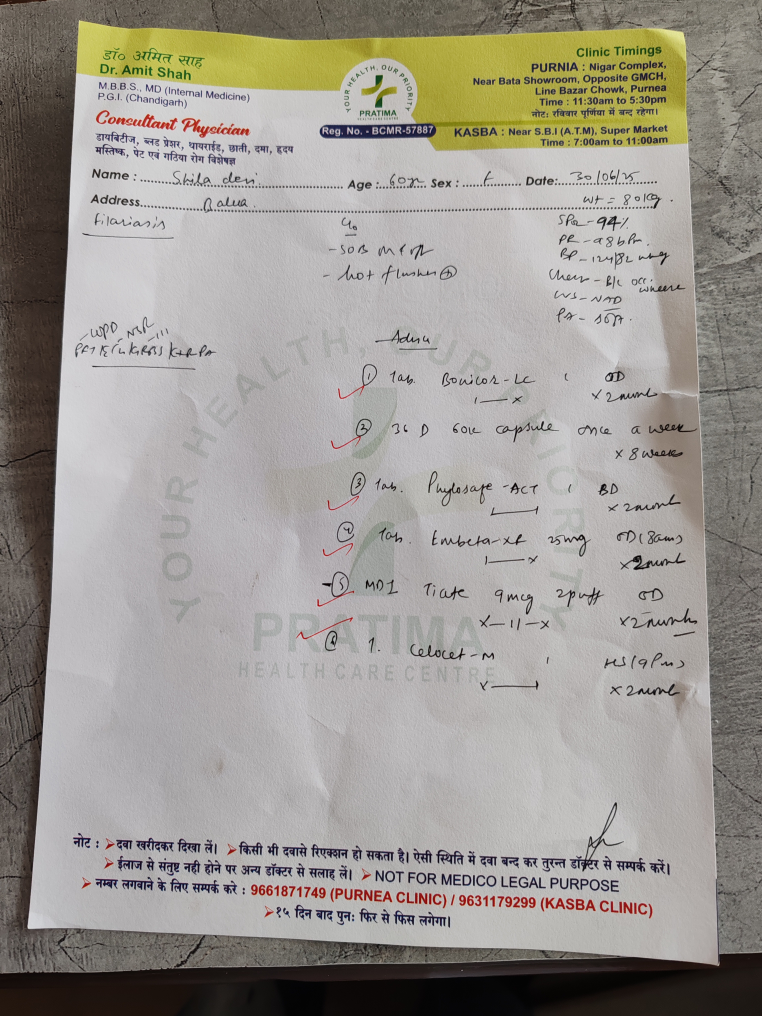 डॉ० अमित साह
Dr. Amit Shah
M.B.B.S., MD (Internal Medicine)
P.G.I. (Chandigarh)
Consultant Physician
डायबिटीज, ब्लड प्रेशर, थायराईड, छाती, दमा, हृदय
मस्तिष्क, पेट एवं गठिया रोग विशेषज्ञ
YOUR HEALTH, OUR PRIORITY
PRATIMA
HEALTH CARE CENTRE
Reg. No. - BCMR-57887
Clinic Timings
PURNIA : Nigar Complex,
Near Bata Showroom, Opposite GMCH,
Line Bazar Chowk, Purnea
Time : 11:30am to 5:30pm
नोट: रविवार पूर्णिया में बन्द रहेगा।
KASBA : Near S.B.I (A.T.M), Super Market
Time : 7:00am to 11:00am
Name : Shila devi Age : 60 Sex : F Date: 30/06/25
Address
wt = 80kg.
Filariasis
c/o
- SOB
- hot flushes
SPO2 - 94%
PR - 98bpm.
BP - 124/82 mmhg
Chest - B/L occ. wheeze
CVS - NAD
PA - soft.
Advice
1 Tab. Bonicor-LC 1 OD
1—x x 2 month
2 36 D 60k capsule once a week
x 8 weeks
3 Tab. Phylosafe-ACT 1 BD
x 2 month
4 Tab. Embeta-XR 25mg OD (8am)
1—x x 2 month
5 MDI Tiate 9mcg 2puff OD
x—11—x x 2 months
6 T. Celocet-M 1 HS (9pm)
x 2 month
YOUR HEALTH, OUR PRIORITY
PRATIMA
HEALTH CARE CENTRE
नोट : ➢दवा खरीदकर दिखा लें। ➢किसी भी दवासे रिएक्शन हो सकता है। ऐसी स्थिति में दवा बन्द कर तुरन्त डॉक्टर से सम्पर्क करें।
➢ईलाज से संतुष्ट नही होने पर अन्य डॉक्टर से सलाह लें। ➢NOT FOR MEDICO LEGAL PURPOSE
➢नम्बर लगवाने के लिए सम्पर्क करे : 9661871749 (PURNEA CLINIC) / 9631179299 (KASBA CLINIC)
➢१५ दिन बाद पुन: फिर से फिस लगेगा।